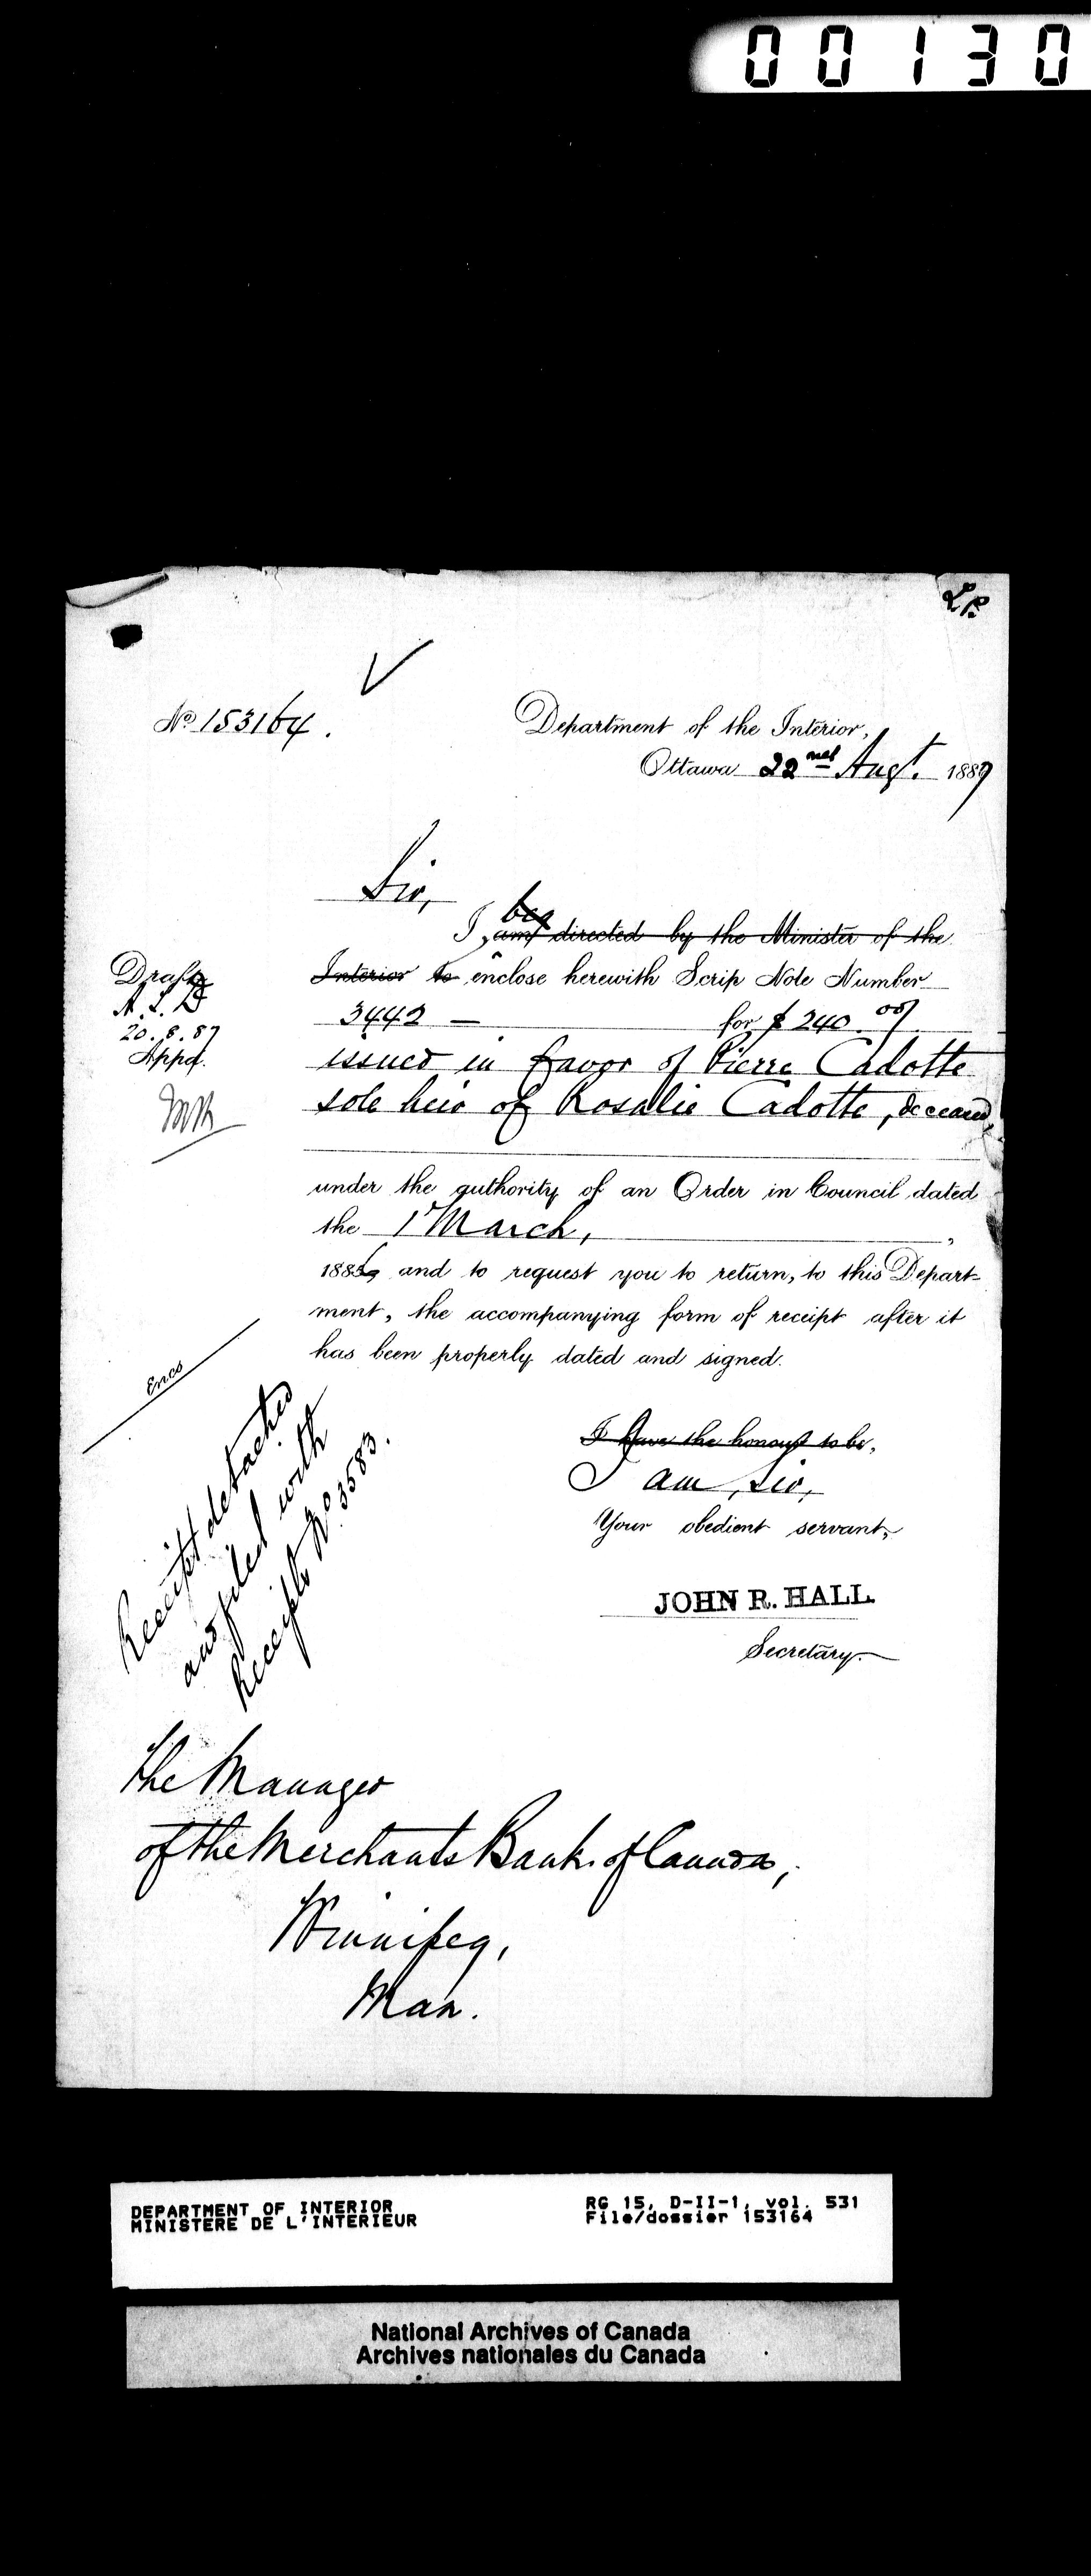 00130
No 153164.
Department of the Interior,
Ottawa 22nd Augt. 1887
Sir,
beg
I am directed by the Minister of the
Interior to enclose herewith Scrip Note Number
3442 — for $ 240.00/
issued in favor of Pierre Cadotte
sole heir of Rosalie Cadotte, deceased,
under the authority of an Order in Council dated
the 1st March,
1886, and to request you to return, to this Depart-
ment, the accompanying form of receipt after it
has been properly dated and signed.
I have the honour to be,
I am, Sir,
Your obedient servant,
JOHN R. HALL.
Secretary.
Draft
20.8.87
Appd.
Encs
Receipt detached
and filed with
Receipts No. 3583.
The Manager
of the Merchants Bank of Canada,
Winnipeg,
Man.
DEPARTMENT OF INTERIOR
MINISTERE DE L'INTERIEUR
RG 15, D-II-1, vol. 531
File/dossier 153164
National Archives of Canada
Archives nationales du Canada